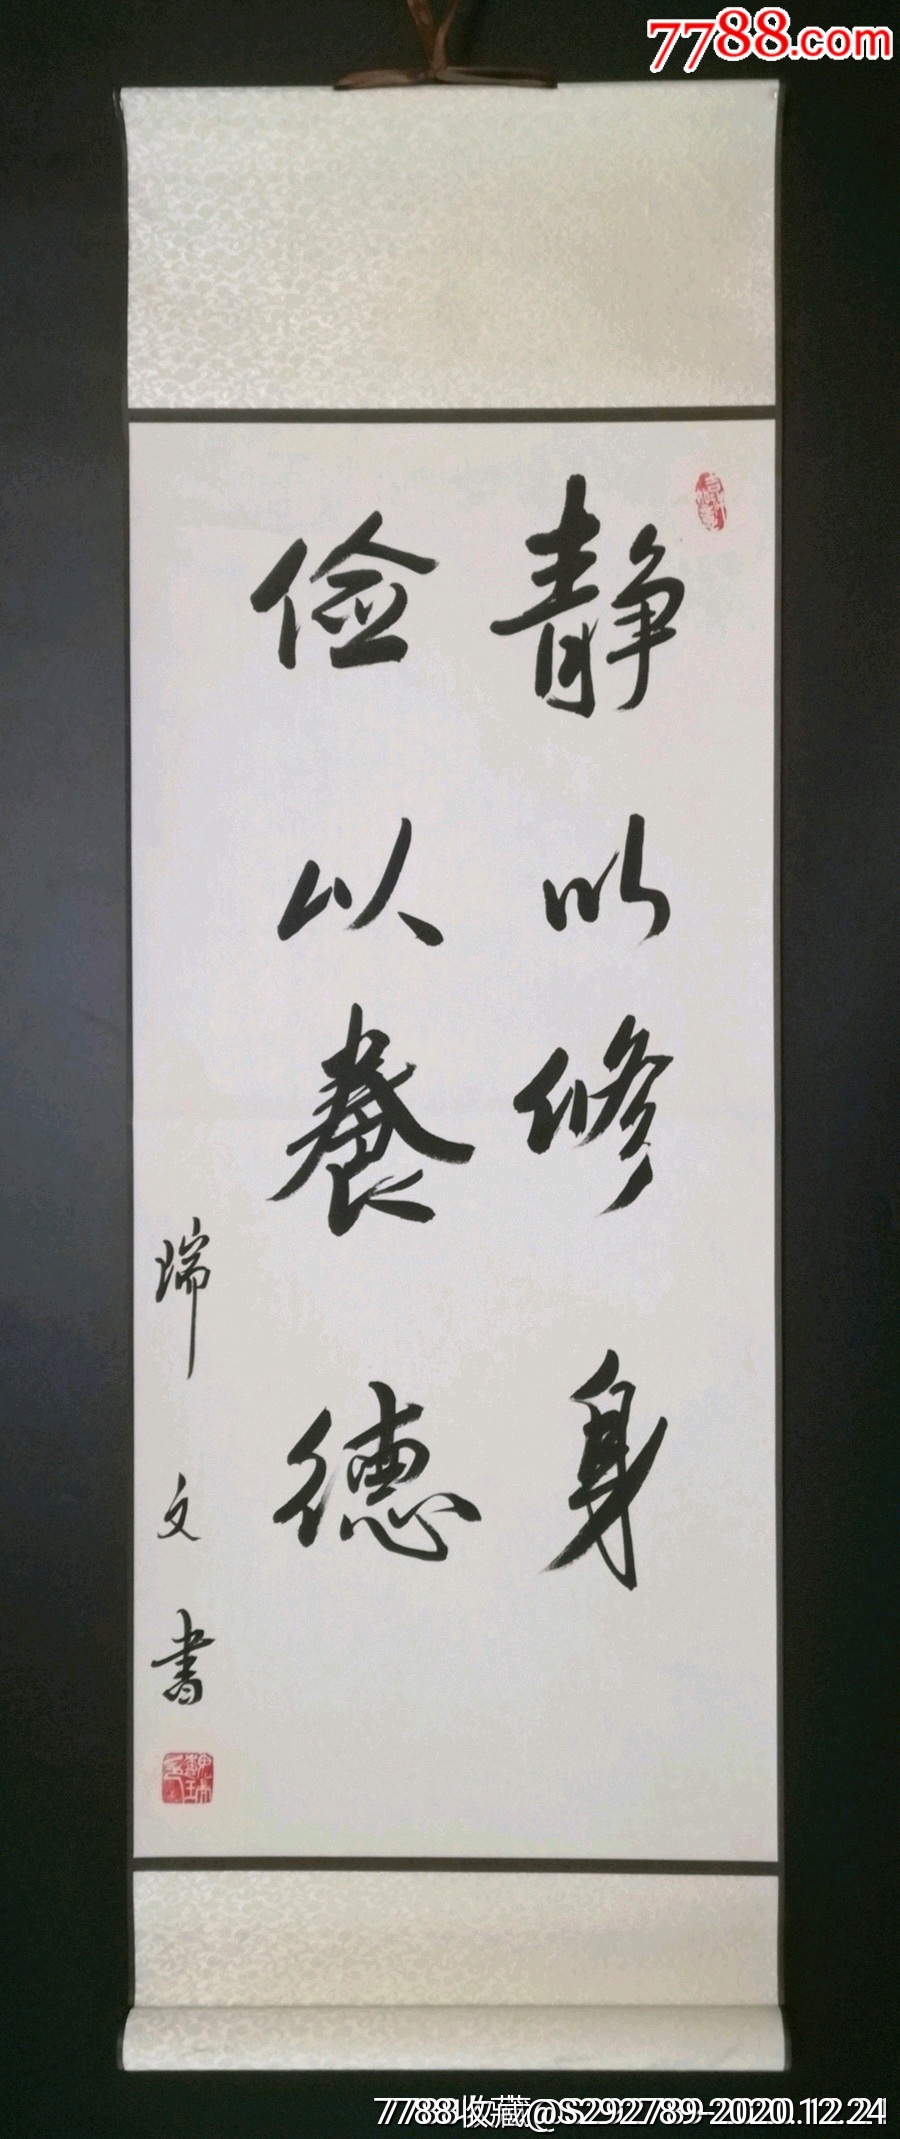 7788.com
静以修身
俭以養德
瑞文書
7788收藏@S292789-2020.12.24